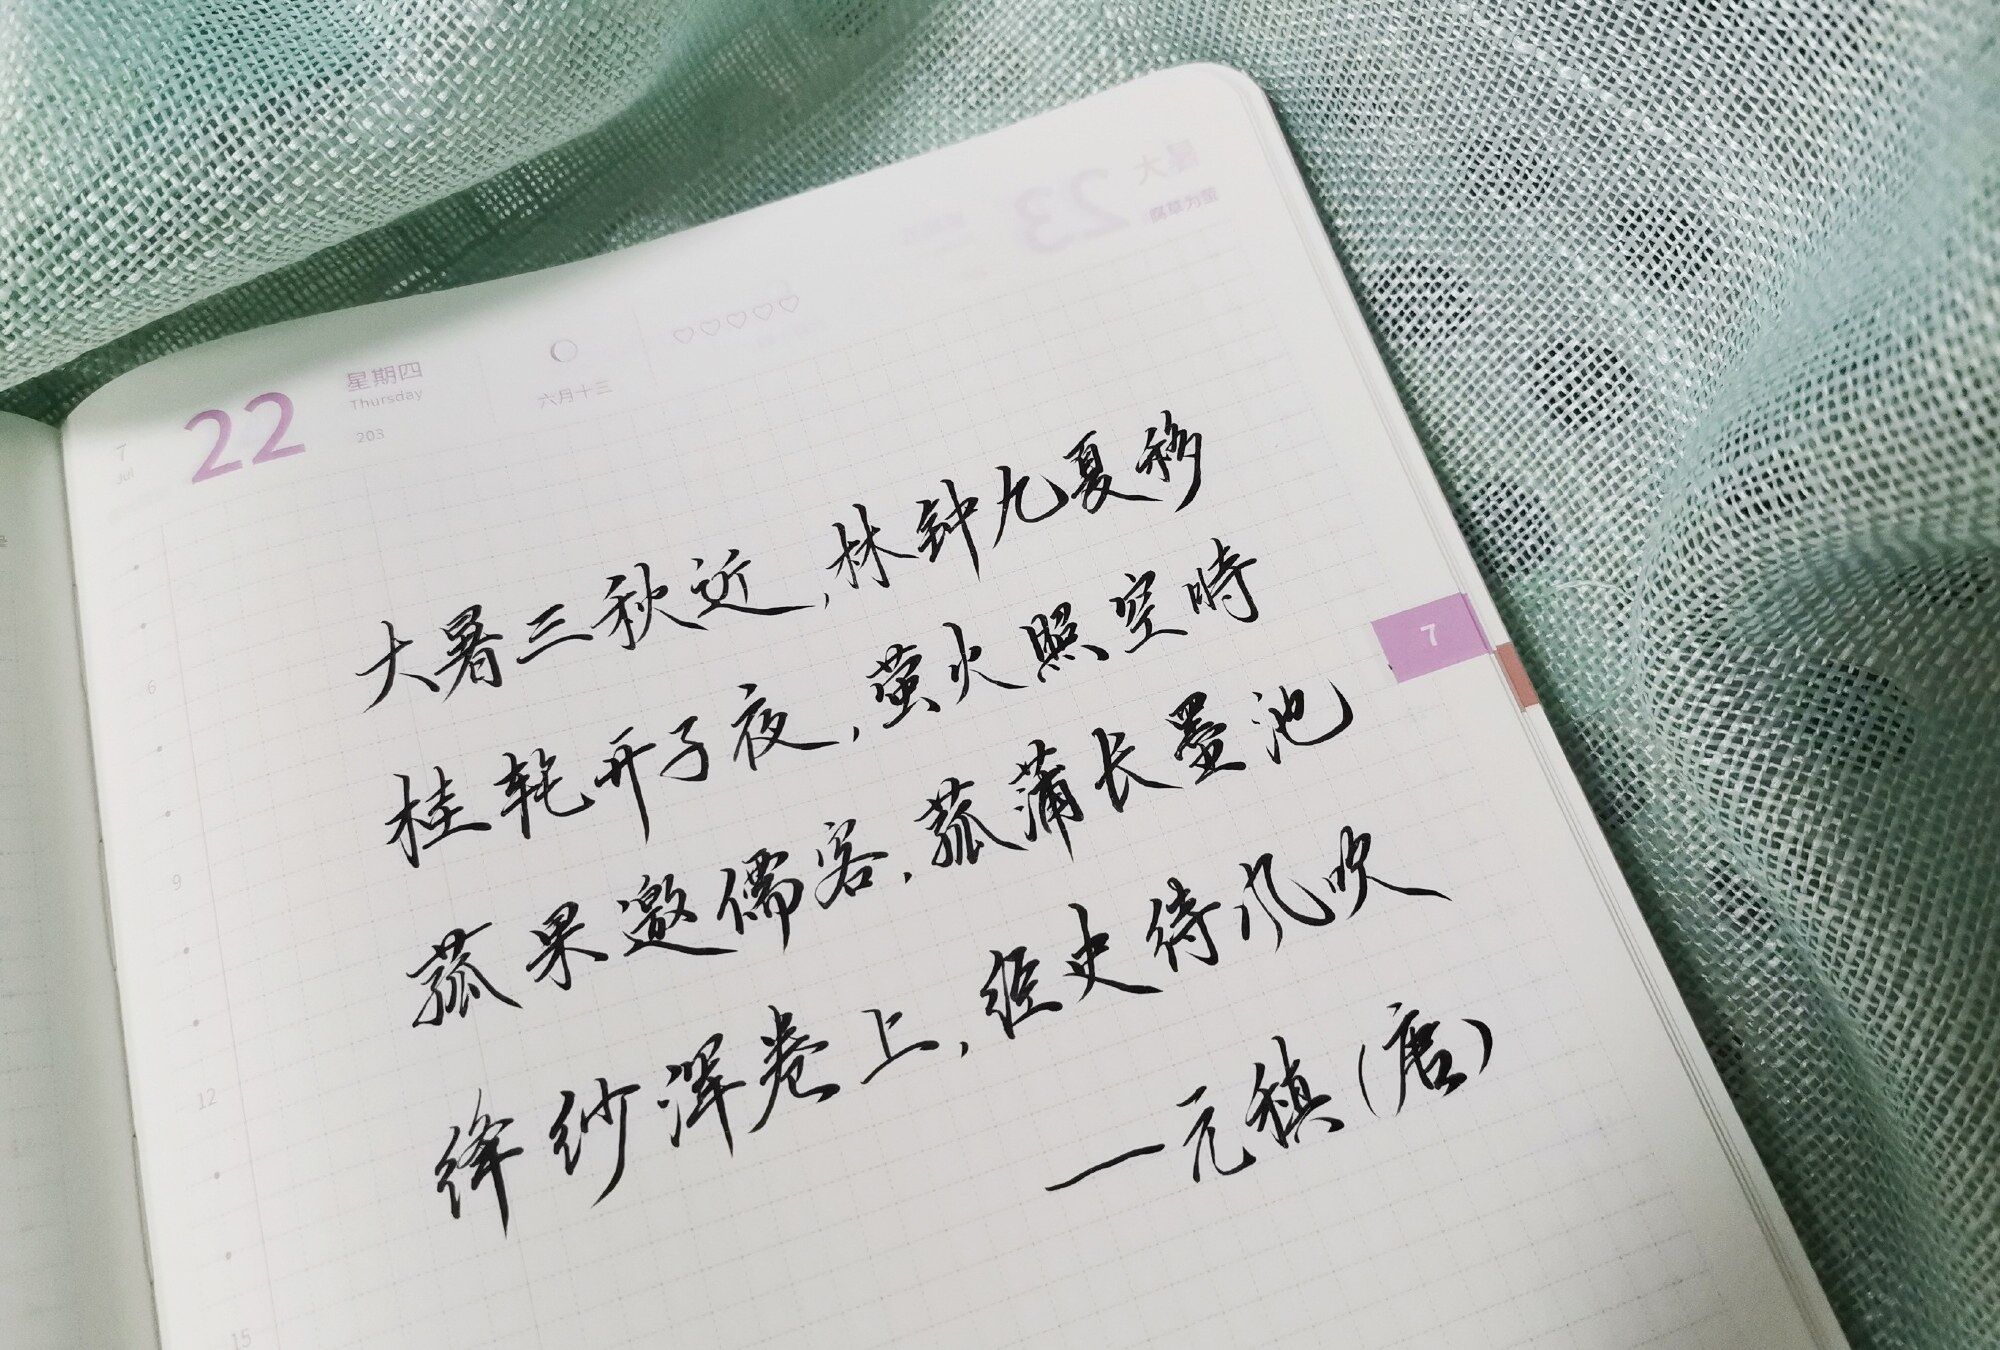 22
星期四
Thursday
203
六月十三
7
Jul
大暑三秋近，林钟九夏移
桂轮开子夜，萤火照空時
菰果邀儒客，菰蒲长墨池
绛纱浑卷上，经史待风吹
—元稹（唐）
7
6
9
12
15
23
大暑
腐草为萤